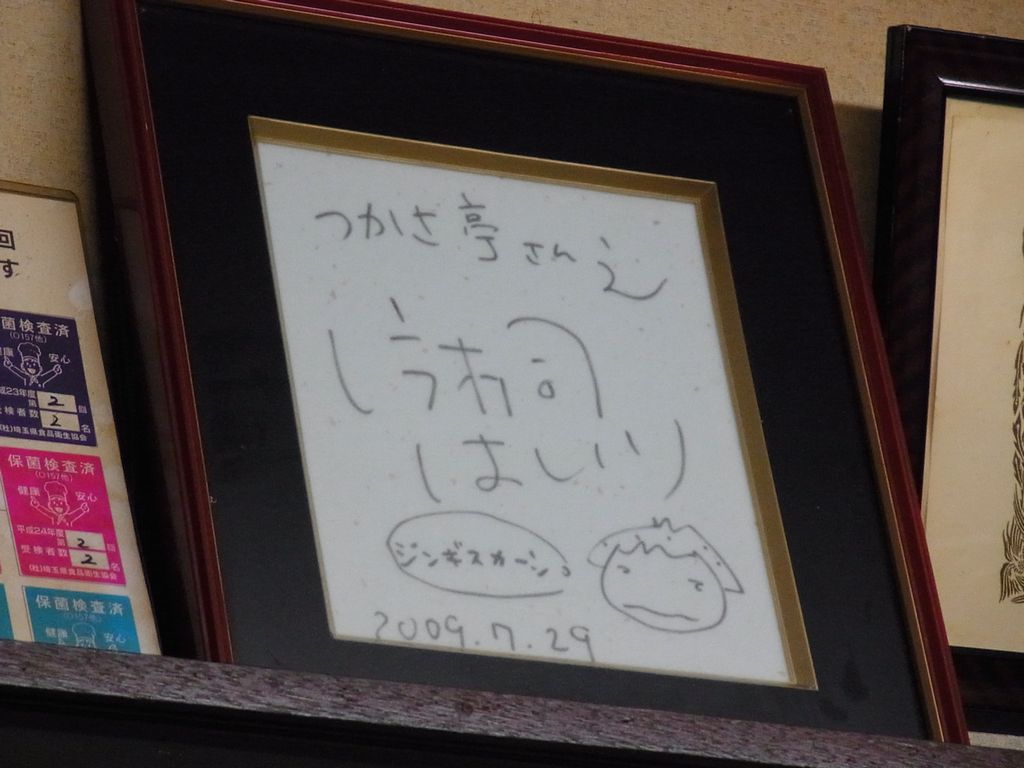 つかさ亭さんえ
ジンギスカーンっ
2009.7.29
回
す
菌検査済
(O157他)
康 安心
成23年度
第 2 回
検者数 2 名
(社)埼玉県食品衛生協会
保菌検査済
(O157他)
健康 安心
平成24年度
第 2 回
受検者数 2 名
(社)埼玉県食品衛生協会
保菌検査済
(O157他)
健康 安心